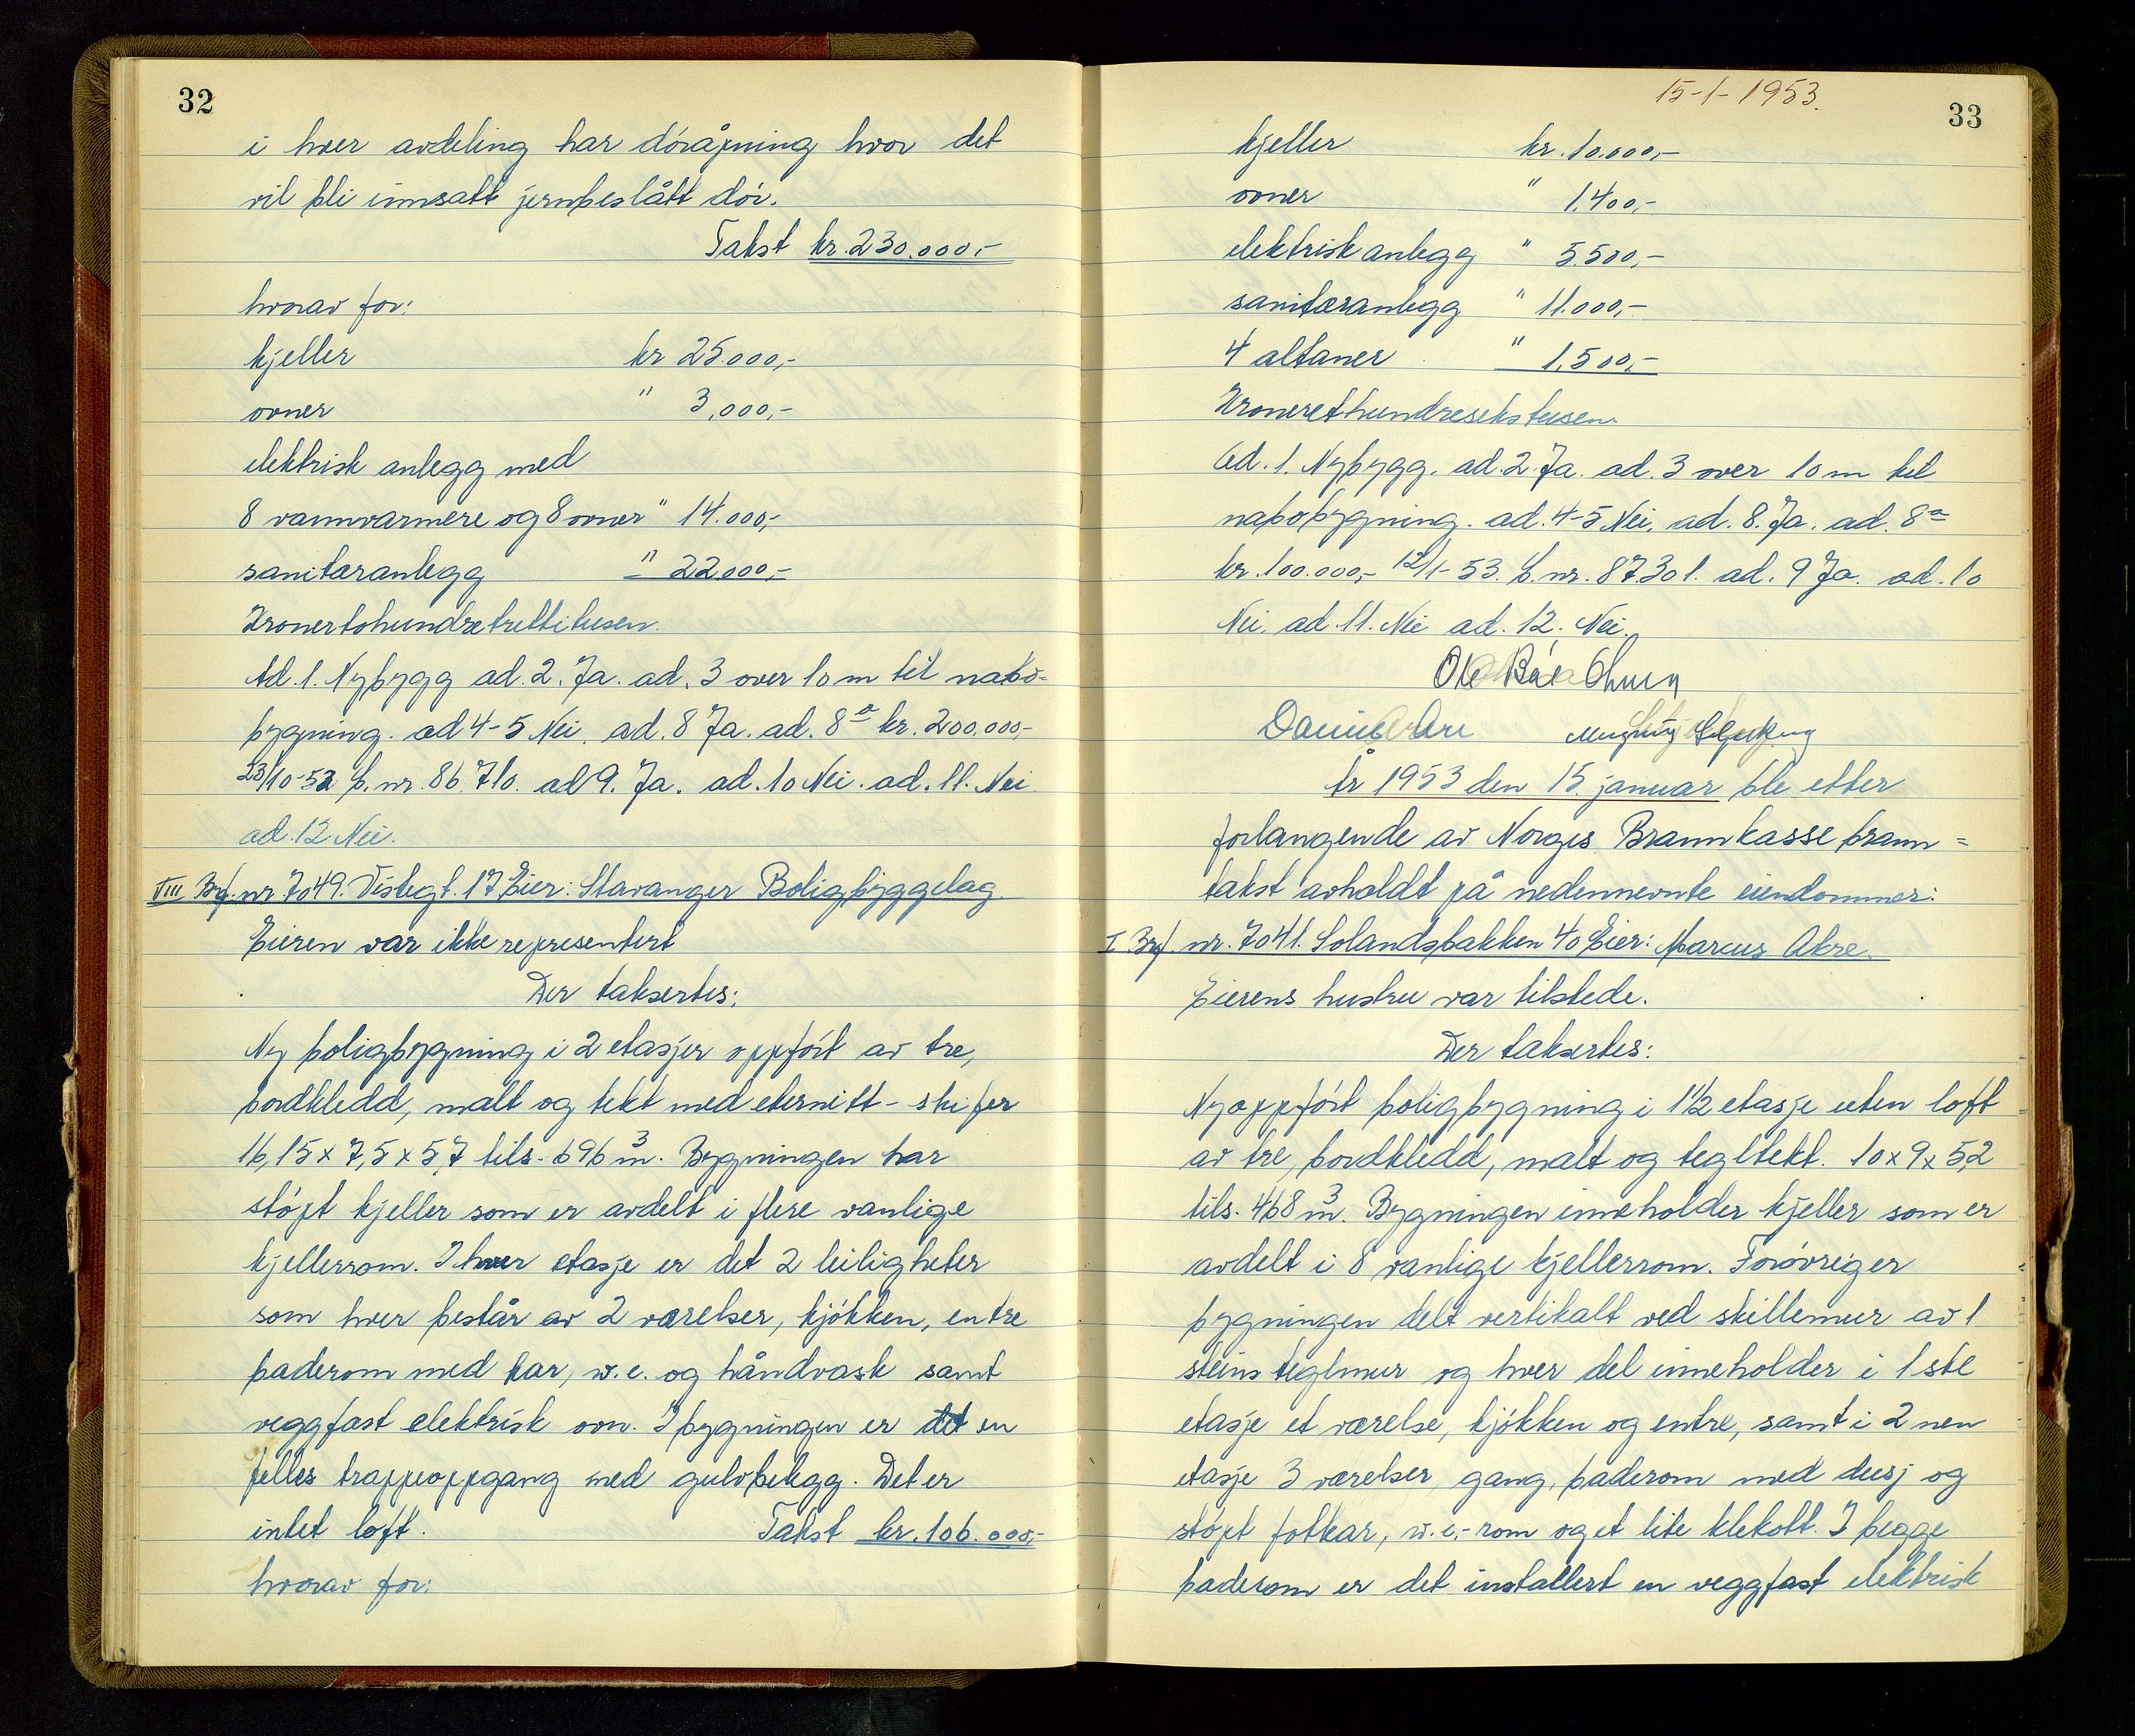 32
i hver avdeling har döråpning hvor det
vil bli innsatt jernbeslått dör.
Takst kr. 230.000,-
hvorav for:
kjeller kr 25.000,-
ovner " 3,000,-
elektrisk anlegg med
8 vannvarmere og 8 ovner " 14.000,-
sanitæranlegg " 22000,-
Kronertohundretrettitusen.
Ad. 1. Nybygg ad. 2. Ja. ad. 3 over 10 m til nabo=
bygning. ad 4-5 Nei. ad. 8 Ja. ad. 8a kr. 200.000,-
23/10-52 b. nr. 86710. ad 9. Ja. ad. 10 Nei. ad. 11. Nei
ad. 12. Nei.
VIII Brf. nr. 7049. Vistegt. 17 Eier: Stavanger Boligbyggelag.
Eieren var ikke representert
Der taksertes:
Ny boligbygning i 2 etasjer oppfört av tre,
bordkledd, malt og tekt med eternitt-skifer
16,15 x 7,5 x 5,7 tils. 696 m3. Bygningen har
støpt kjeller som er avdelt i flere vanlige
kjellerrom. I hver etasje er det 2 leiligheter
som hver består av 2 værelser, kjökken, entre
baderom med kar, w.c. og håndvask samt
veggfast elektrisk ovn. I bygningen er det en
felles trappeoppgang med gulvbelegg. Det er
intet loft. Takst kr. 106.000,-
hvorav for:
15-1-1953.
33
kjeller kr. 10.000,-
ovner " 1.400,-
elektrisk anlegg " 5.500,-
sanitæranlegg " 11.000,-
4 altaner " 1.500,-
Kronerethundresekstusen.
Ad. 1. Nybygg. ad. 2. Ja. ad. 3 over 10 m til
nabobygning. ad. 4-5 Nei. ad. 8. Ja. ad. 8a
kr. 100.000,- 12/1-53. b. nr. 87301. ad. 9 Ja. ad. 10
Nei. ad. 11. Nei ad. 12. Nei.
År 1953 den 15. januar ble etter
forlangende av Norges Brannkasse brann=
takst avholdt på nedennevnte eiendommer:
I Brf. nr. 7041. Solandsbakken 40 Eier: Marcus Akre.
Eierens hustru var tilstede.
Der taksertes:
Nyoppfört boligbygning i 1 1/2 etasje uten loft
av tre, bordkledd, malt og tegltekt. 10 x 9 x 5,2
tils. 468 m3. Bygningen inneholder kjeller som er
avdelt i 8 vanlige kjellerrom. Forövrig er
bygningen delt vertikalt ved skillemur av 1
steins teglmur og hver del inneholder i 1ste
etasje et værelse, kjökken og entre, samt i 2 nen
etasje 3 værelser, gang, baderom med dusj og
støpt fotkar, w.c.-rom og et lite klekott. I begge
baderom er det installert en veggfast elektrisk